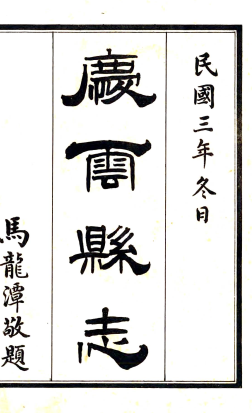 民國三年冬日
慶雲縣志
馬龍潭敬題